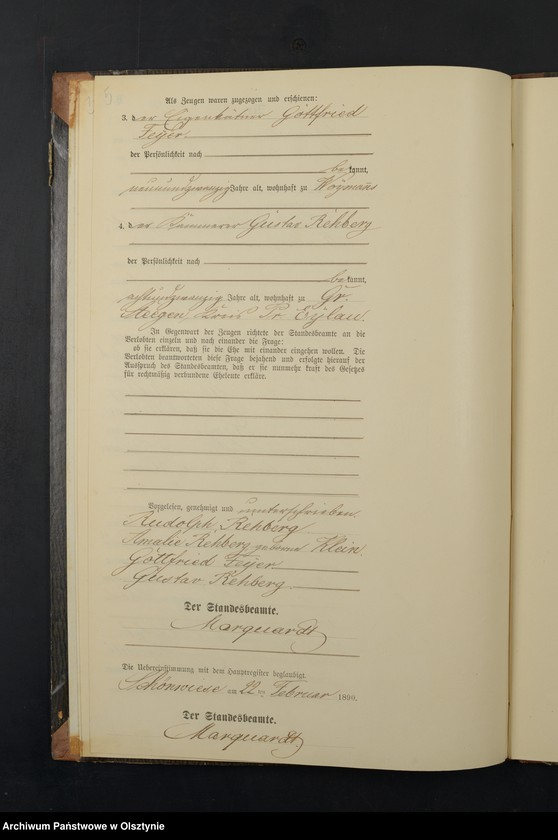 5
Als Zeugen waren zugezogen und erschienen:
3. der Eigenkätner Gottfried
Feyer
der Persönlichkeit nach
bekannt,
neunundzwanzig Jahre alt, wohnhaft zu Woymanns
4. der Kämmerer Gustav Rehberg
der Persönlichkeit nach
bekannt,
achtundzwanzig Jahre alt, wohnhaft zu Gr.
Steegen, Kreis Pr. Eylau.
In Gegenwart der Zeugen richtete der Standesbeamte an die
Verlobten einzeln und nach einander die Frage:
ob sie erklären, daß sie die Ehe mit einander eingehen wollen. Die
Verlobten beantworteten diese Frage bejahend und erfolgte hierauf der
Ausspruch des Standesbeamten, daß er sie nunmehr kraft des Gesetzes
für rechtmäßig verbundene Eheleute erkläre.
Vorgelesen, genehmigt und unterschrieben
Rudolph Rehberg
Amalie Rehberg geborene Klein
Gottfried Feyer
Gustav Rehberg
Der Standesbeamte.
Marquardt
Die Uebereinstimmung mit dem Hauptregister beglaubigt.
Schönwiese am 22ten Februar 1890.
Der Standesbeamte.
Marquardt
Archiwum Państwowe w Olsztynie